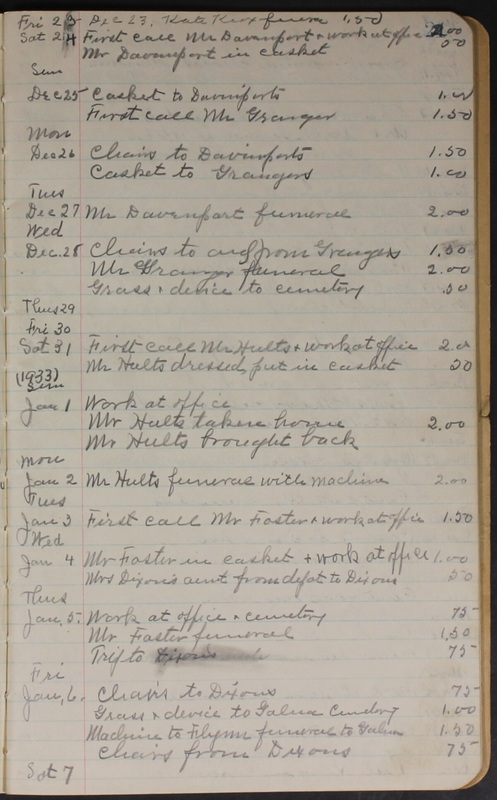 Fri 23 Dec 23, Kate Kerr funera 1.50
Sat 24 First call Mr Davenport + work at offic 2.00
Mr Davenport in casket 50
Sun
Dec 25 Casket to Davenports 1.00
First call Mr Granger 1.50
Mon
Dec 26 Chairs to Davenports 1.50
Casket to Grangers 1.00
Tues
Dec 27 Mr Davenport funeral 2.00
Wed
Dec. 28 Chairs to and from Grangers 1.50
Mr Granger funeral 2.00
Grass + device to cemetery .50
Thurs 29
Fri 30
Sat 31 First call Mr Hults + work at offic 2.00
Mr Hults dressed, put in casket 50
(1933)
Sun
Jan 1 Work at office
Mr Hults taken home 2.00
Mr Hults brought back
Mon
Jan 2 Mr Hults funeral with machine 2.00
Tues
Jan 3 First call Mr Foster + work at offic 1.50
Wed
Jan 4 Mr Foster in casket + work at office 1.00
Mrs Dixons aunt from depot to Dixons 50
Thus
Jan, 5. Work at office + cemetery 75
Mr Foster funeral 1.50
Trip to Dixons 75
Fri
Jan, 6. Chairs to Dixons 75
Grass + device to Galena Cemetery 1.00
Machine to Flynn funeral to Galena 1.50
Chairs from Dixons 75
Sat 7